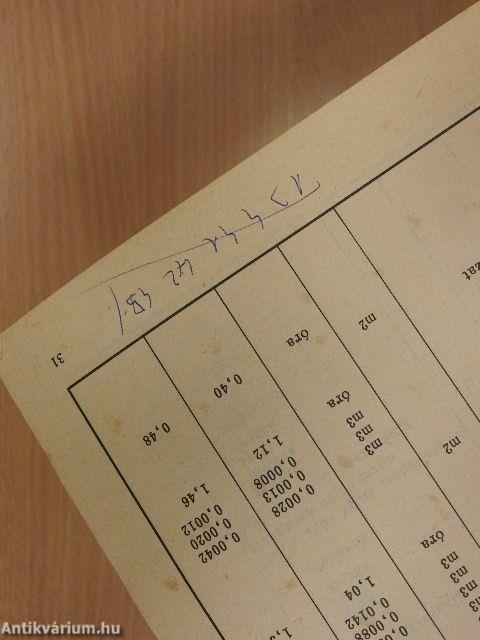 31
m2
óra
0,40
0,48
óra
1,12
1,46
m3
0,0008
0,0012
m3
0,0013
0,0020
m3
0,0028
0,0042
m2
óra
1,04
m3
0,0142
m3
m3
Antikvárium.hu